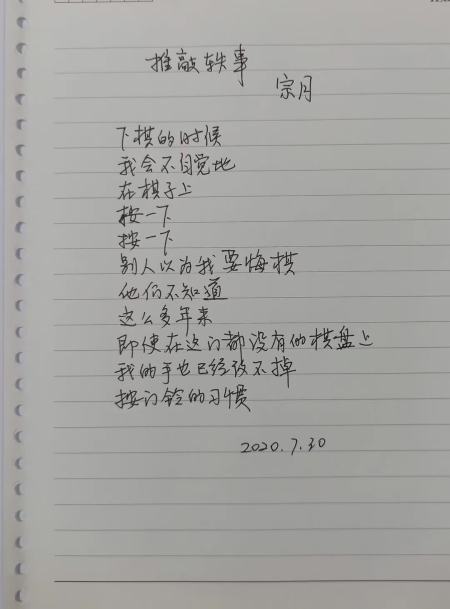 推敲轶事
宗月
下棋的时候
我会不自觉地
在棋子上
按一下
按一下
别人以为我要悔棋
他们不知道
这么多年来
即使在这门都没有的棋盘上
我的手也已经改不掉
按门铃的习惯
2020.7.30